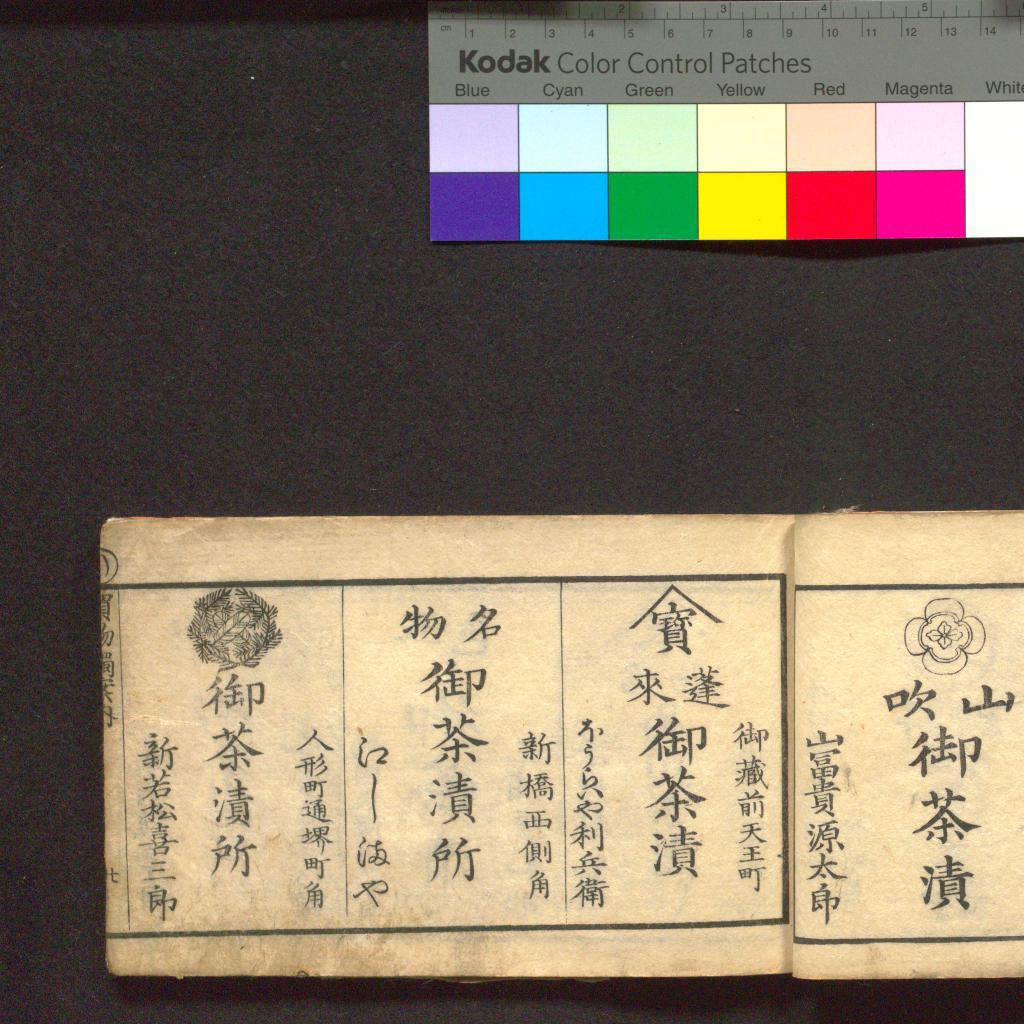 Kodak Color Control Patches
Blue Cyan Green Yellow Red Magenta White
cm 1 2 3 4 5 6 7 8 9 10 11 12 13 14
山吹
御茶漬
山冨貴源太郎
寳
御藏前天王町
蓬來
御茶漬
ほうらいや利兵衛
新橋西側角
名物
御茶漬所
江しまや
人形町通堺町角
御茶漬所
新若松喜三郎
買物獨案内
七